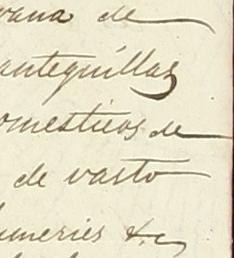 vana de
antequillas
omesticos de
de vasto
umeries &c